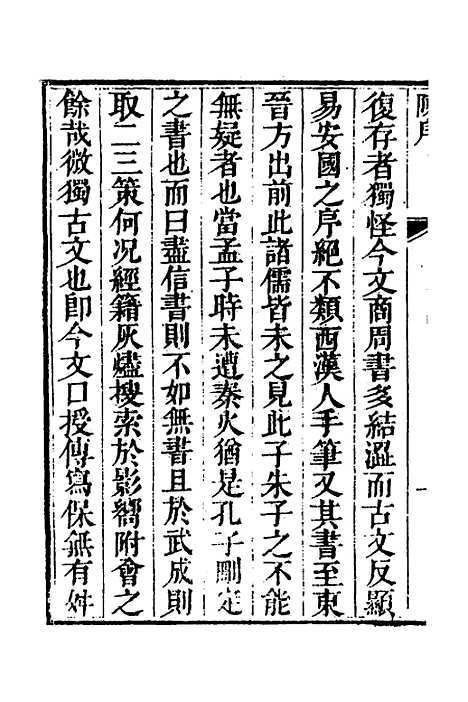 復存者獨怪今文商周書多結澀而古文反顯
易安國之序絕不類西漢人手筆又其書至東
晉方出前此諸儒皆未之見此子朱子之不能
無疑者也當孟子時未遭秦火猶是孔子刪定
之書也而曰盡信書則不如無書且於武成則
取二三策何況經籍灰燼搜索於影嚮附會之
餘哉微獨古文也卽今文口授傳寫保無有舛